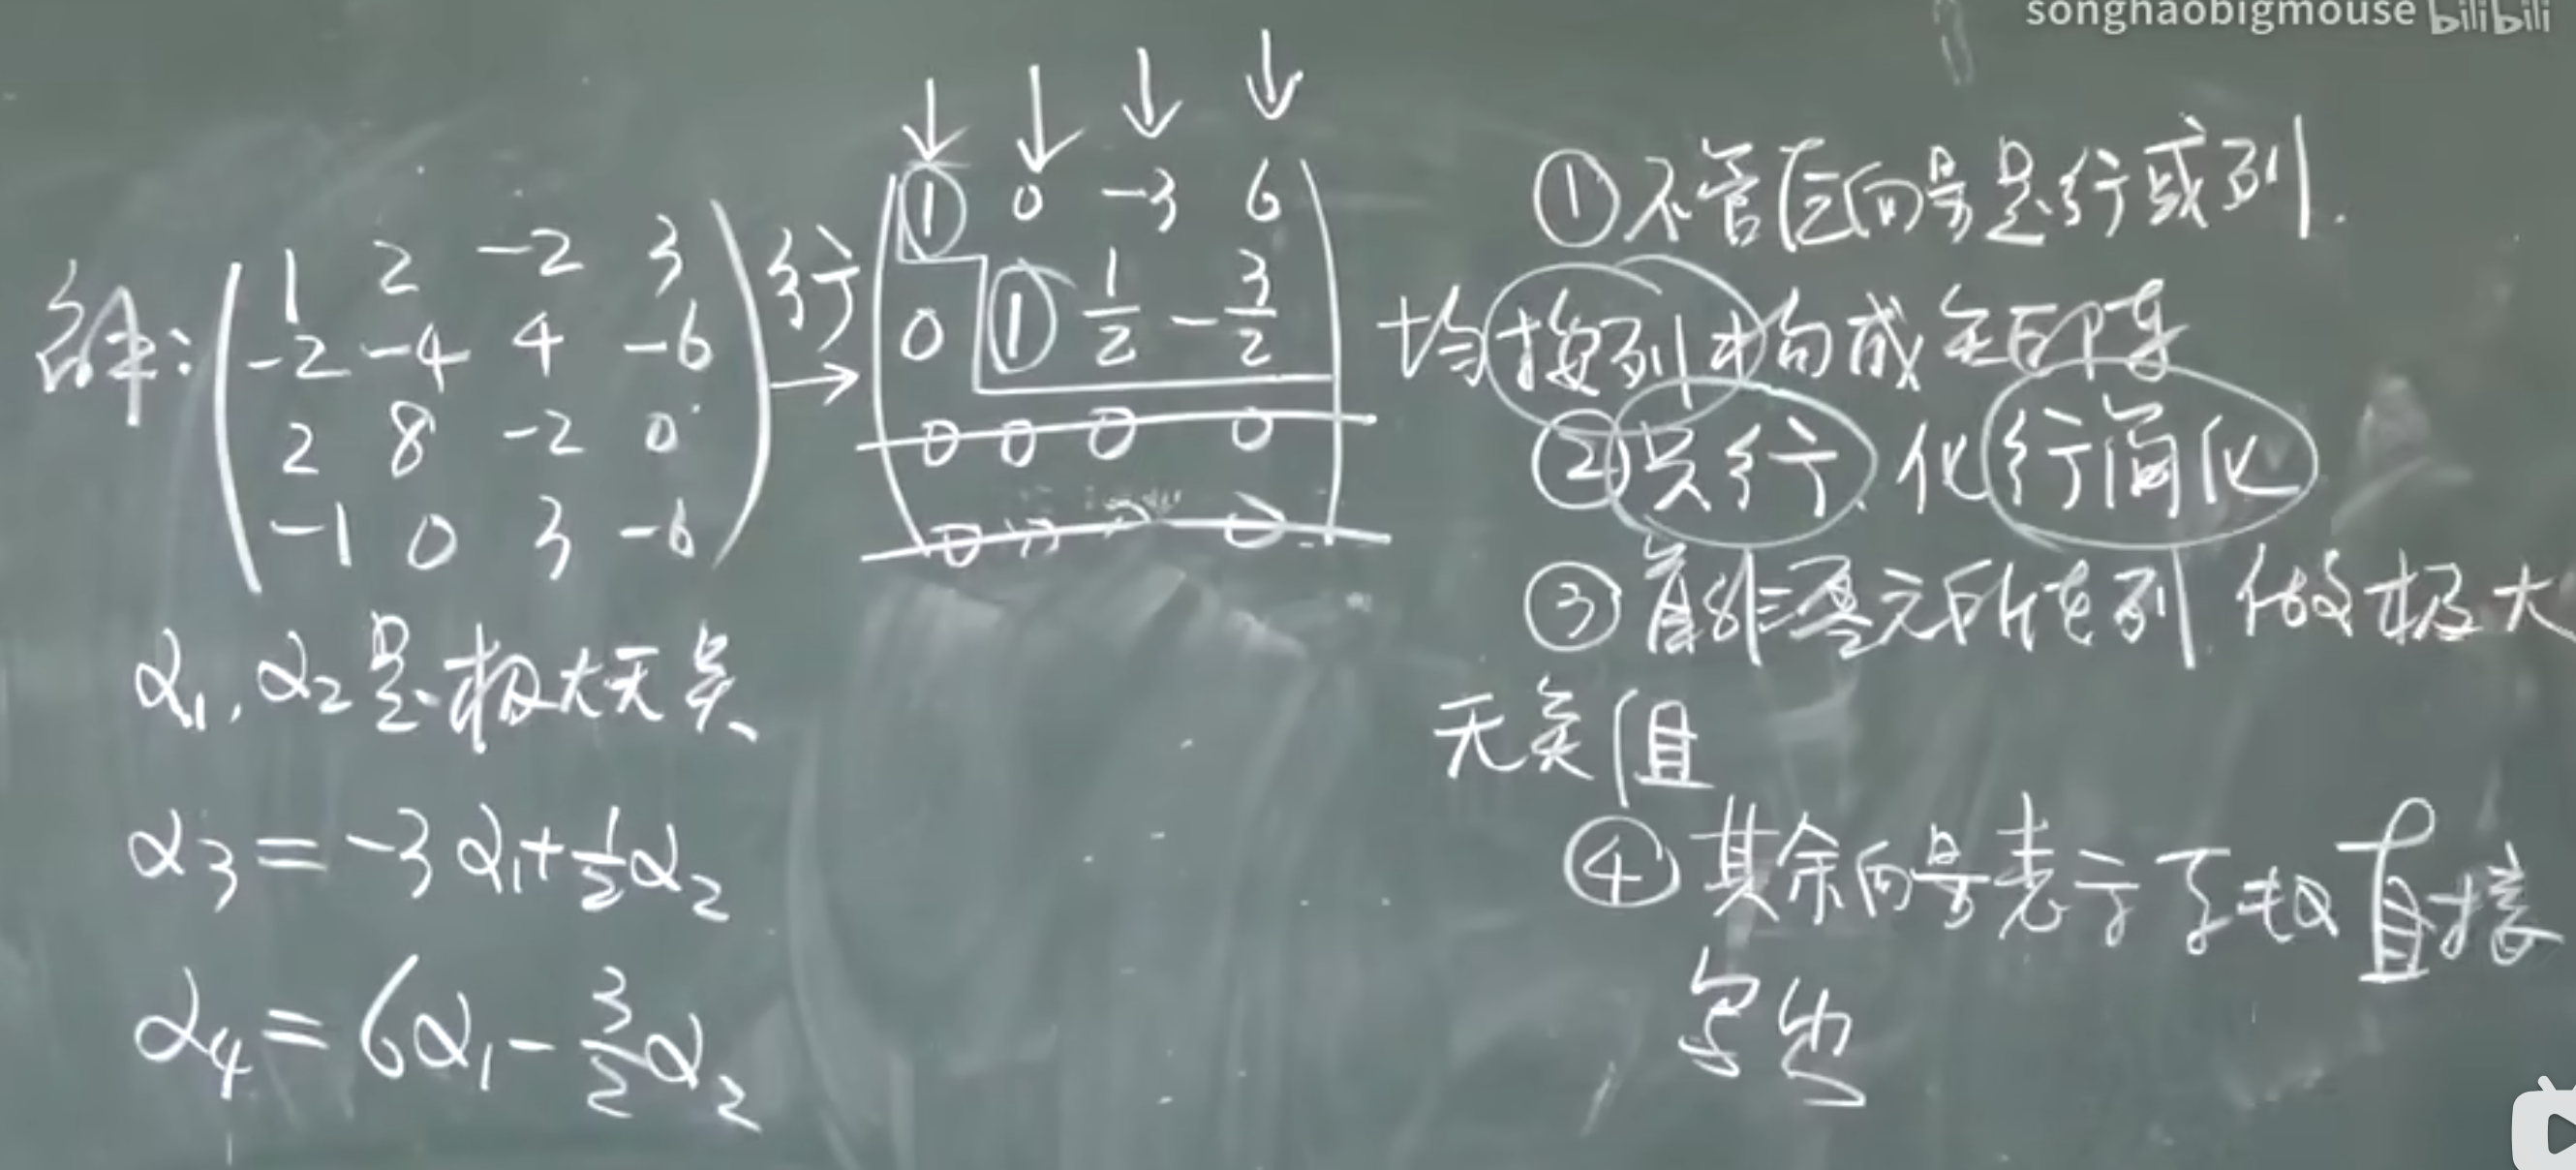 songhaobigmouse bilibili
解:
1 2 -2 3
-2 -4 4 -6
2 8 -2 0
-1 0 3 -6
行
→
↓ ↓ ↓ ↓
1 0 -3 6
0 1 1/2 -3/2
0 0 0 0
0 0 0 0
α1, α2是极大无关
α3 = -3α1 + 1/2 α2
α4 = 6α1 - 3/2 α2
①不管原向量是行或列.
均按列构成矩阵
②只行. 化行简化
③首非零元所在列 做极大
无关组
④其余向量表示系数直接
写出